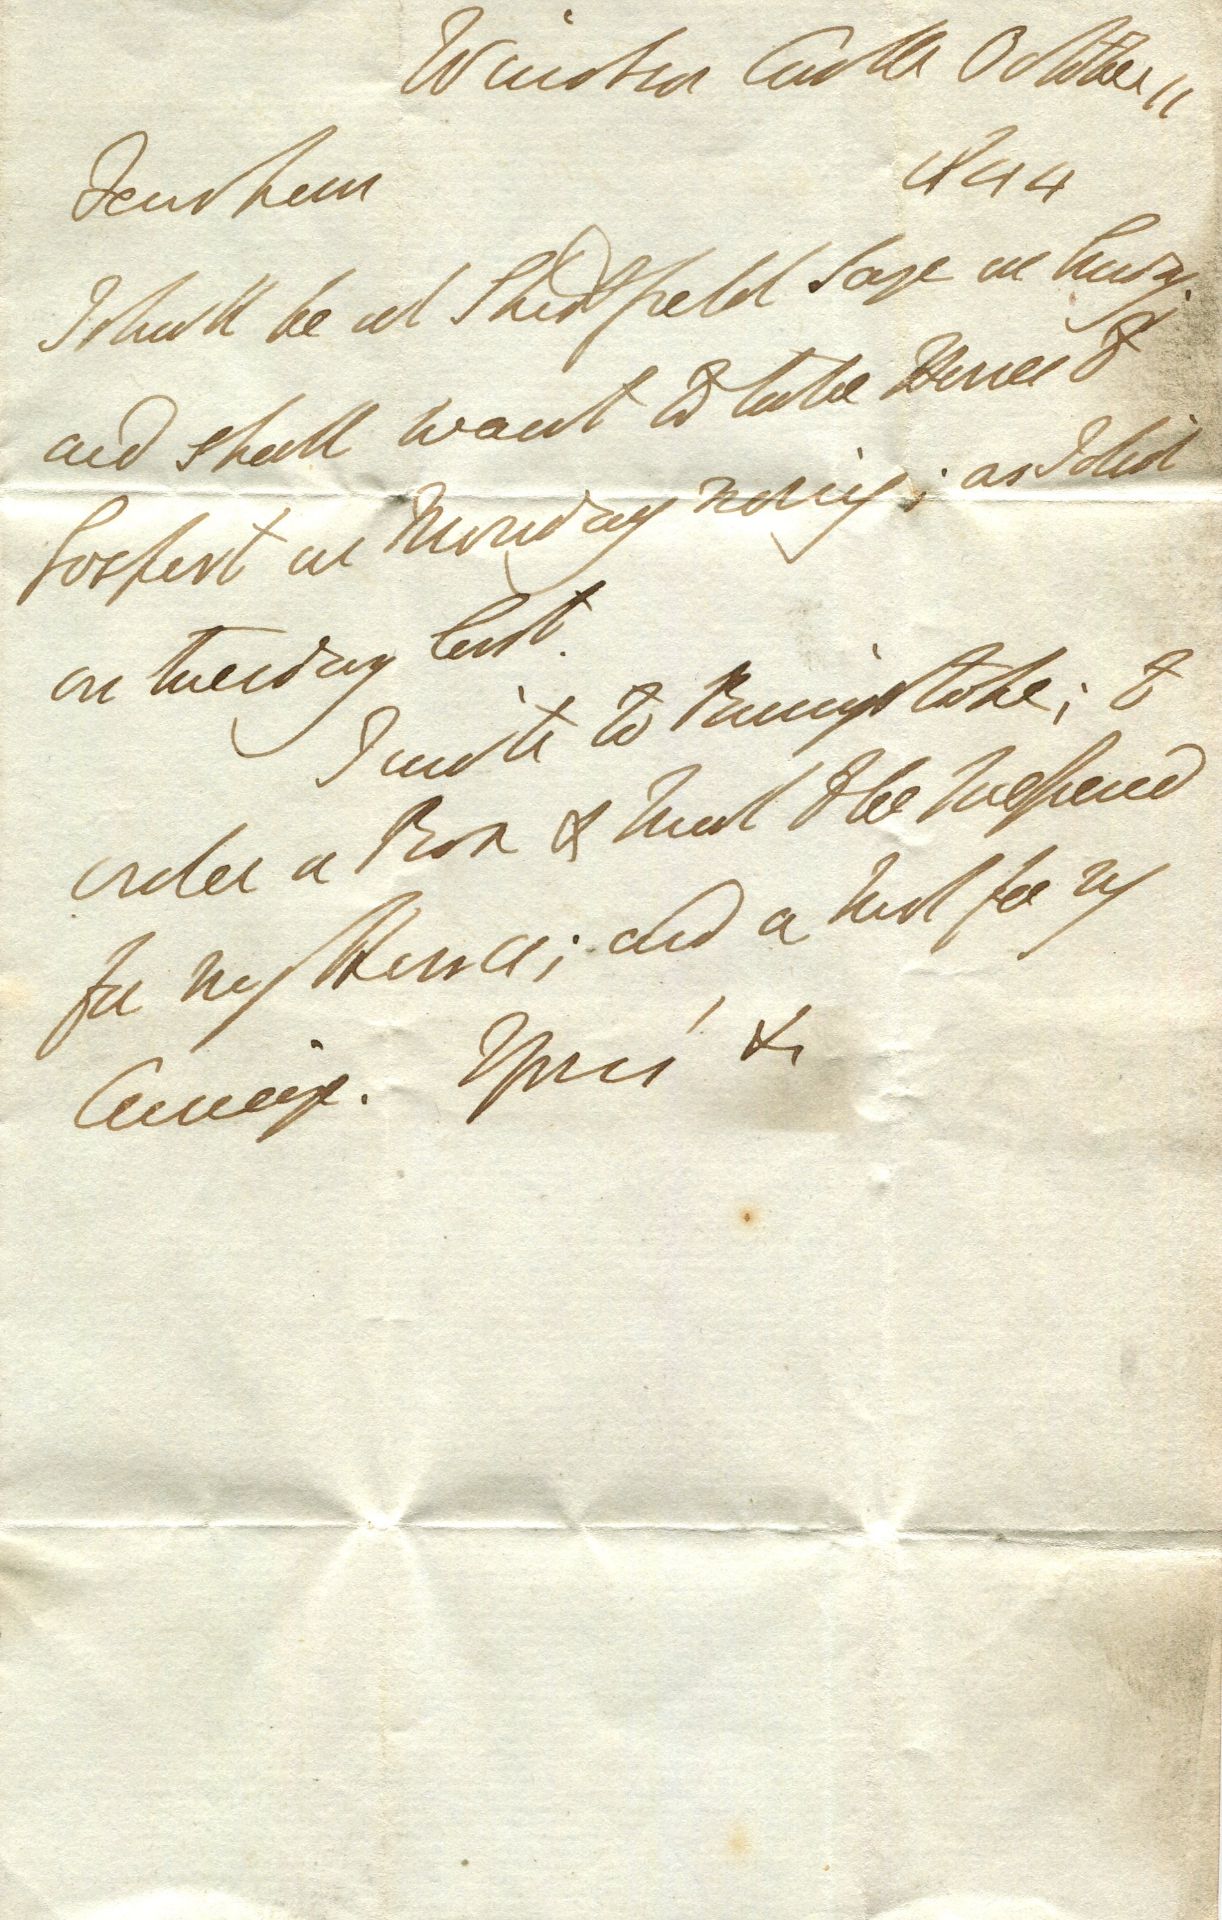 Windsor Castle October 11
1844
I shall be at Strathfield Saye on
and shall want to take Horses to
Gosport on Monday Morning; as I did
on Tuesday last.
I write to Basingstoke; to
order a Box & Truck to be prepared
for my Horses; and a Truck for my
Carriage. Yours &